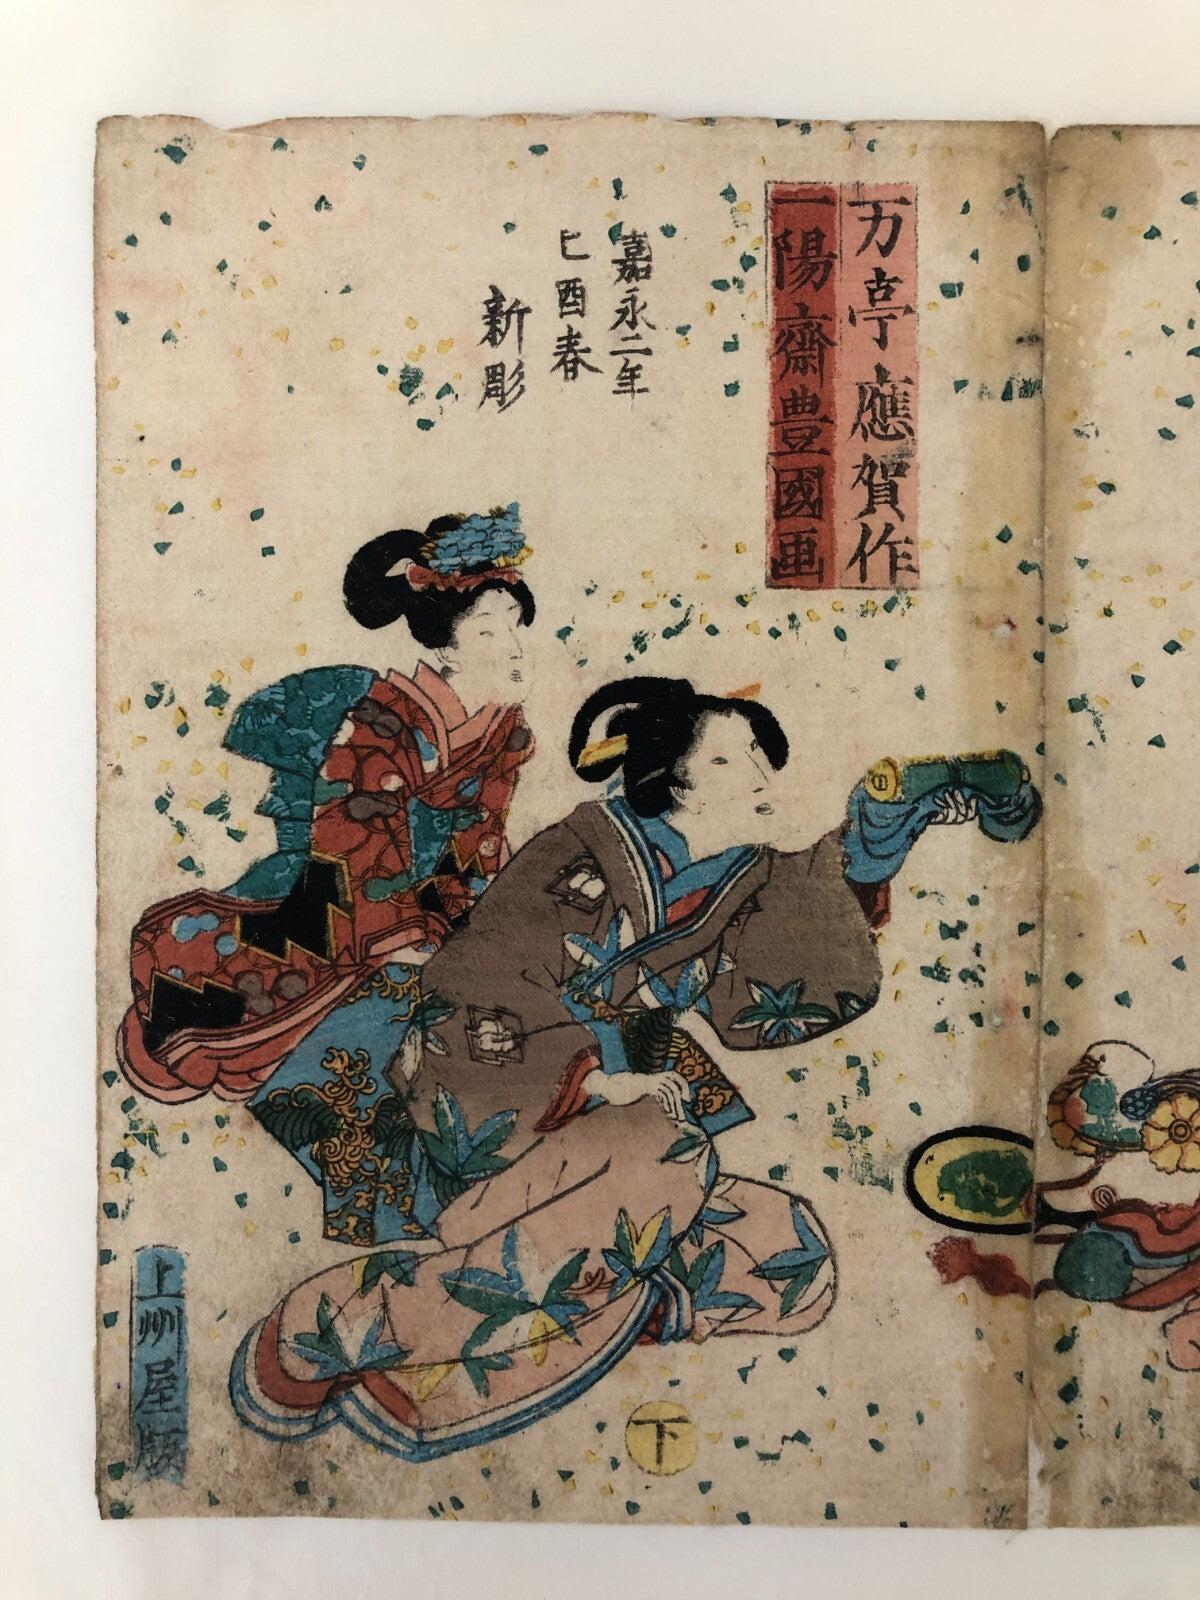 万亭應賀作
一陽齋豊國画
嘉永二年
己酉春
新彫
下
上州屋版